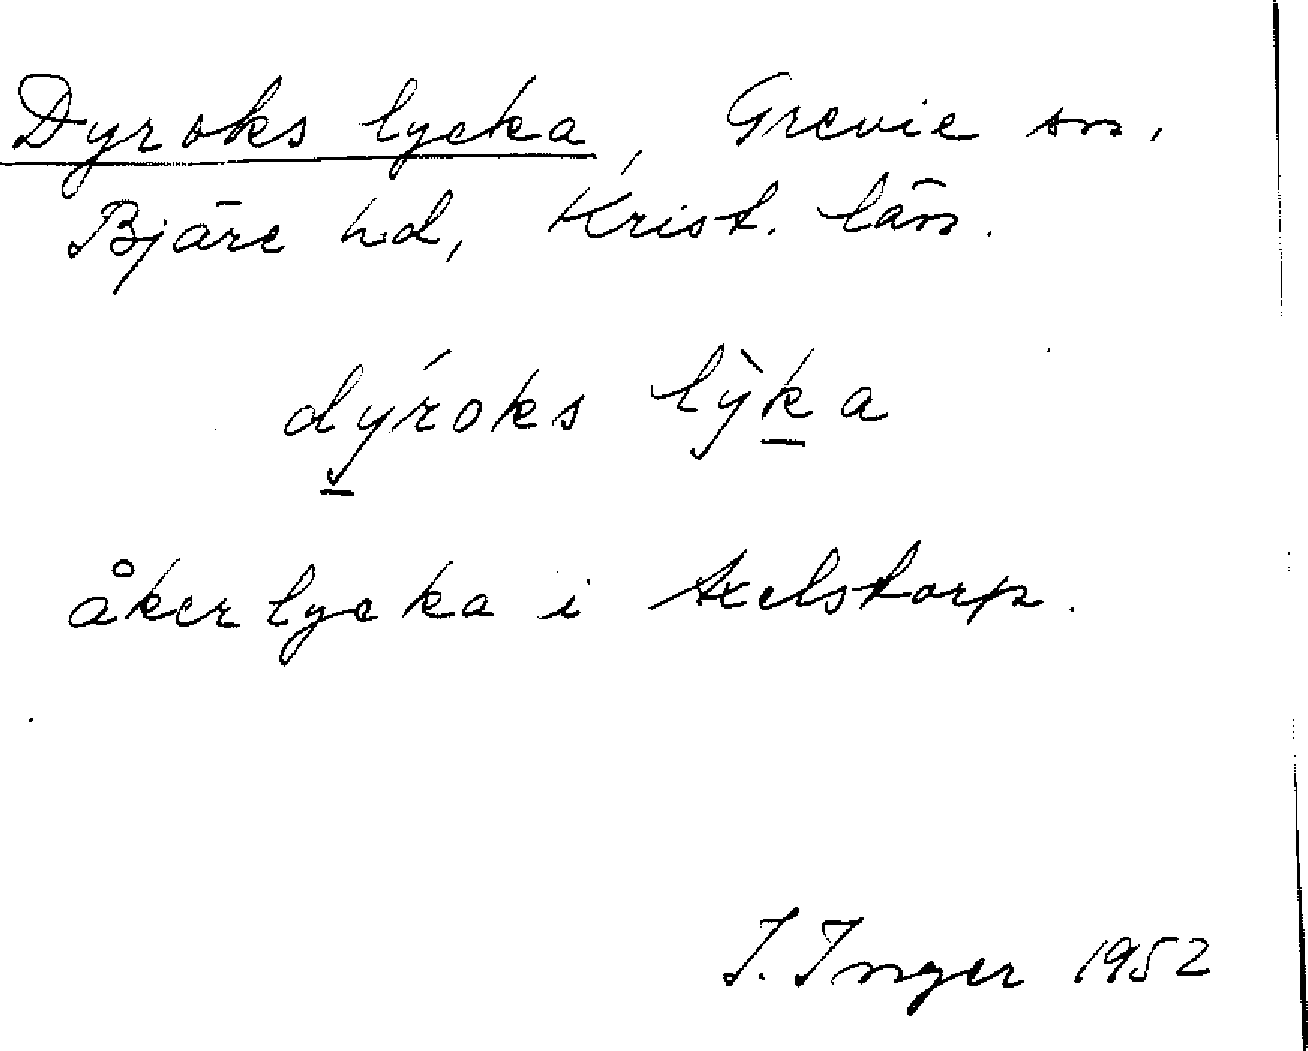 Dyroks lycka, Grevie sn.
Bjäre hd, Krist. län.
dý̲roks lỳk̲a
åkerlycka i Axelstorp.
I. Inger 1952